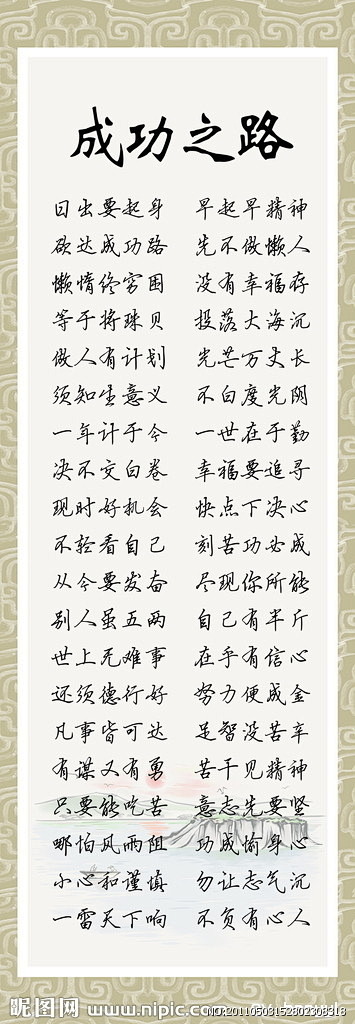 成功之路
日出要起身 早起早精神
欲达成功路 先不做懒人
懒惰终穷困 没有幸福存
等于将珠贝 投落大海沉
做人有计划 光芒万丈长
须知生意义 不白度光阴
一年计于今 一世在于勤
决不交白卷 幸福要追寻
现时好机会 快点下决心
不轻看自己 刻苦功必成
从今要发奋 尽现你所能
别人虽五两 自己有半斤
世上无难事 在乎有信心
还须德行好 努力便成金
凡事皆可达 足智没苦辛
有谋又有勇 苦干见精神
只要能吃苦 意志先要坚
哪怕风雨阻 功成愉身心
小心和谨慎 勿让志气沉
一雷天下响 不负有心人
昵图网 www.nipic.com